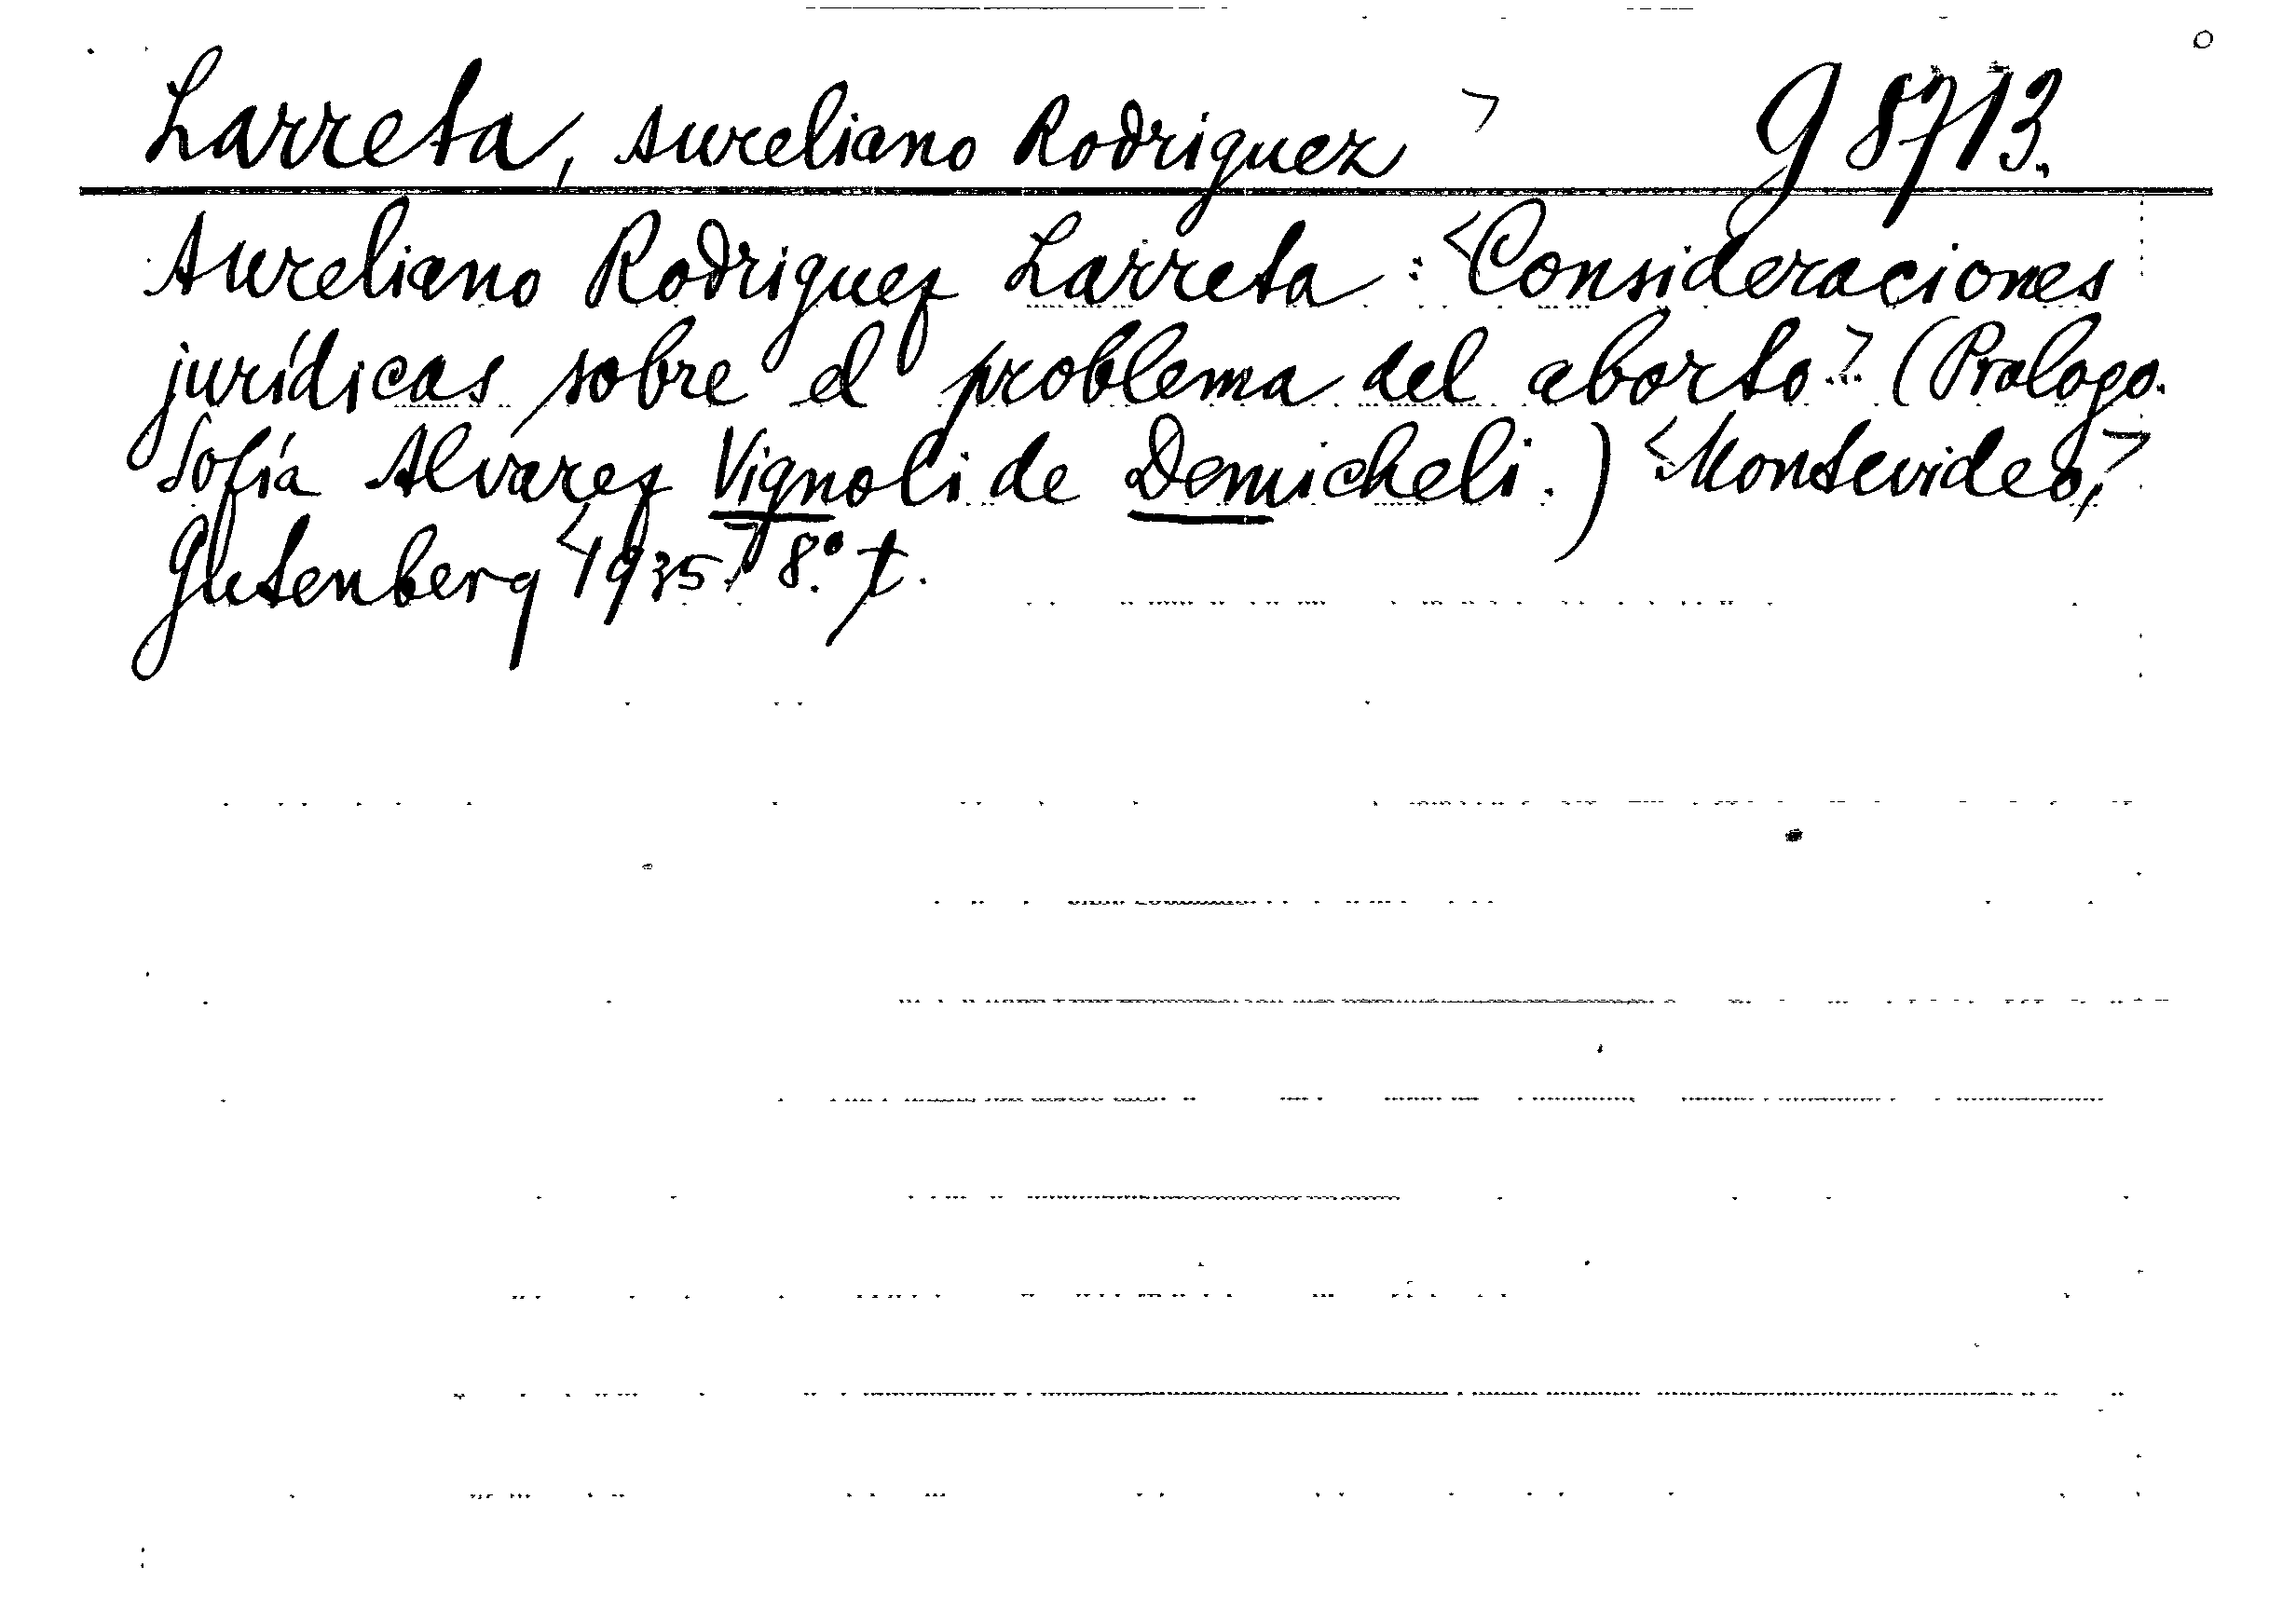 Larreta, Aureliano Rodriguez> G 8713.
Aureliano Rodriguez Larreta: <Consideraciones
jurídicas sobre el problema del aborto.> (Prologo.
Sofía Alvarez Vignoli de Demicheli.) <Montevideo,>
Gutenberg <1935.> 8.° t.